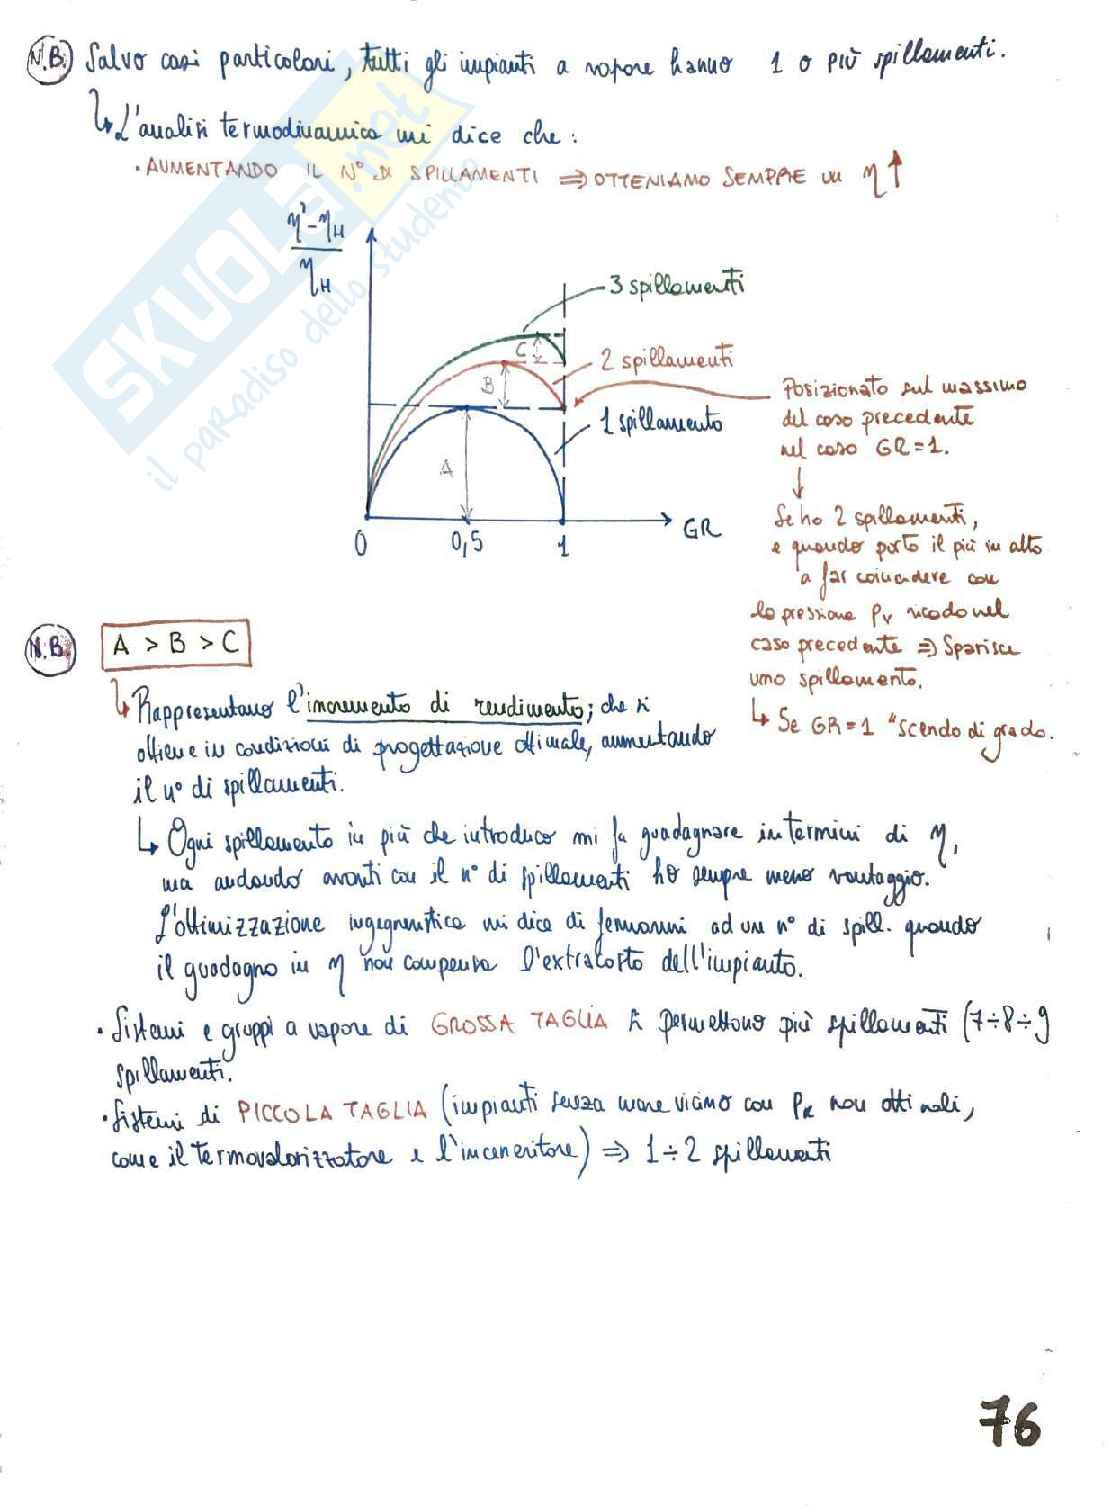 N.B. Salvo casi particolari, tutti gli impianti a vapore hanno 1 o più spillamenti.
↳ L'analisi termodinamica mi dice che:
· AUMENTANDO IL N° DI SPILLAMENTI ⇒ OTTENIAMO SEMPRE UN η↑
η' - ηH
ηH
3 spillamenti
C
2 spillamenti
B
1 spillamento
A
0
0,5
1
GR
Posizionato sul massimo
del caso precedente
nel caso GR=1.
↓
Se ho 2 spillamenti,
e quando porto il più in alto
a far coincidere con
la pressione Pv ricado nel
caso precedente ⇒ Sparisce
uno spillamento.
↳ Se GR=1 "scendo di grado.
N.B. A > B > C
↳ Rappresentano l'incremento di rendimento; che si
ottiene in condizioni di progettazione ottimale, aumentando
il n° di spillamenti.
↳ Ogni spillamento in più che introduco mi fa guadagnare in termini di η,
ma andando avanti con il n° di spillamenti ho sempre meno vantaggio.
L'ottimizzazione ingegneristica mi dice di fermarmi ad un n° di spill. quando
il guadagno in η non compensa l'extracosto dell'impianto.
· Sistemi e gruppi a vapore di GROSSA TAGLIA si permettono più spillamenti (7÷8÷9
spillamenti.
· Sistemi di PICCOLA TAGLIA (impianti senza mare vicino con Pk non ottimali,
come il termovalorizzatore e l'inceneritore) ⇒ 1÷2 spillamenti
76
SKUOLA.net
il paradiso dello studente